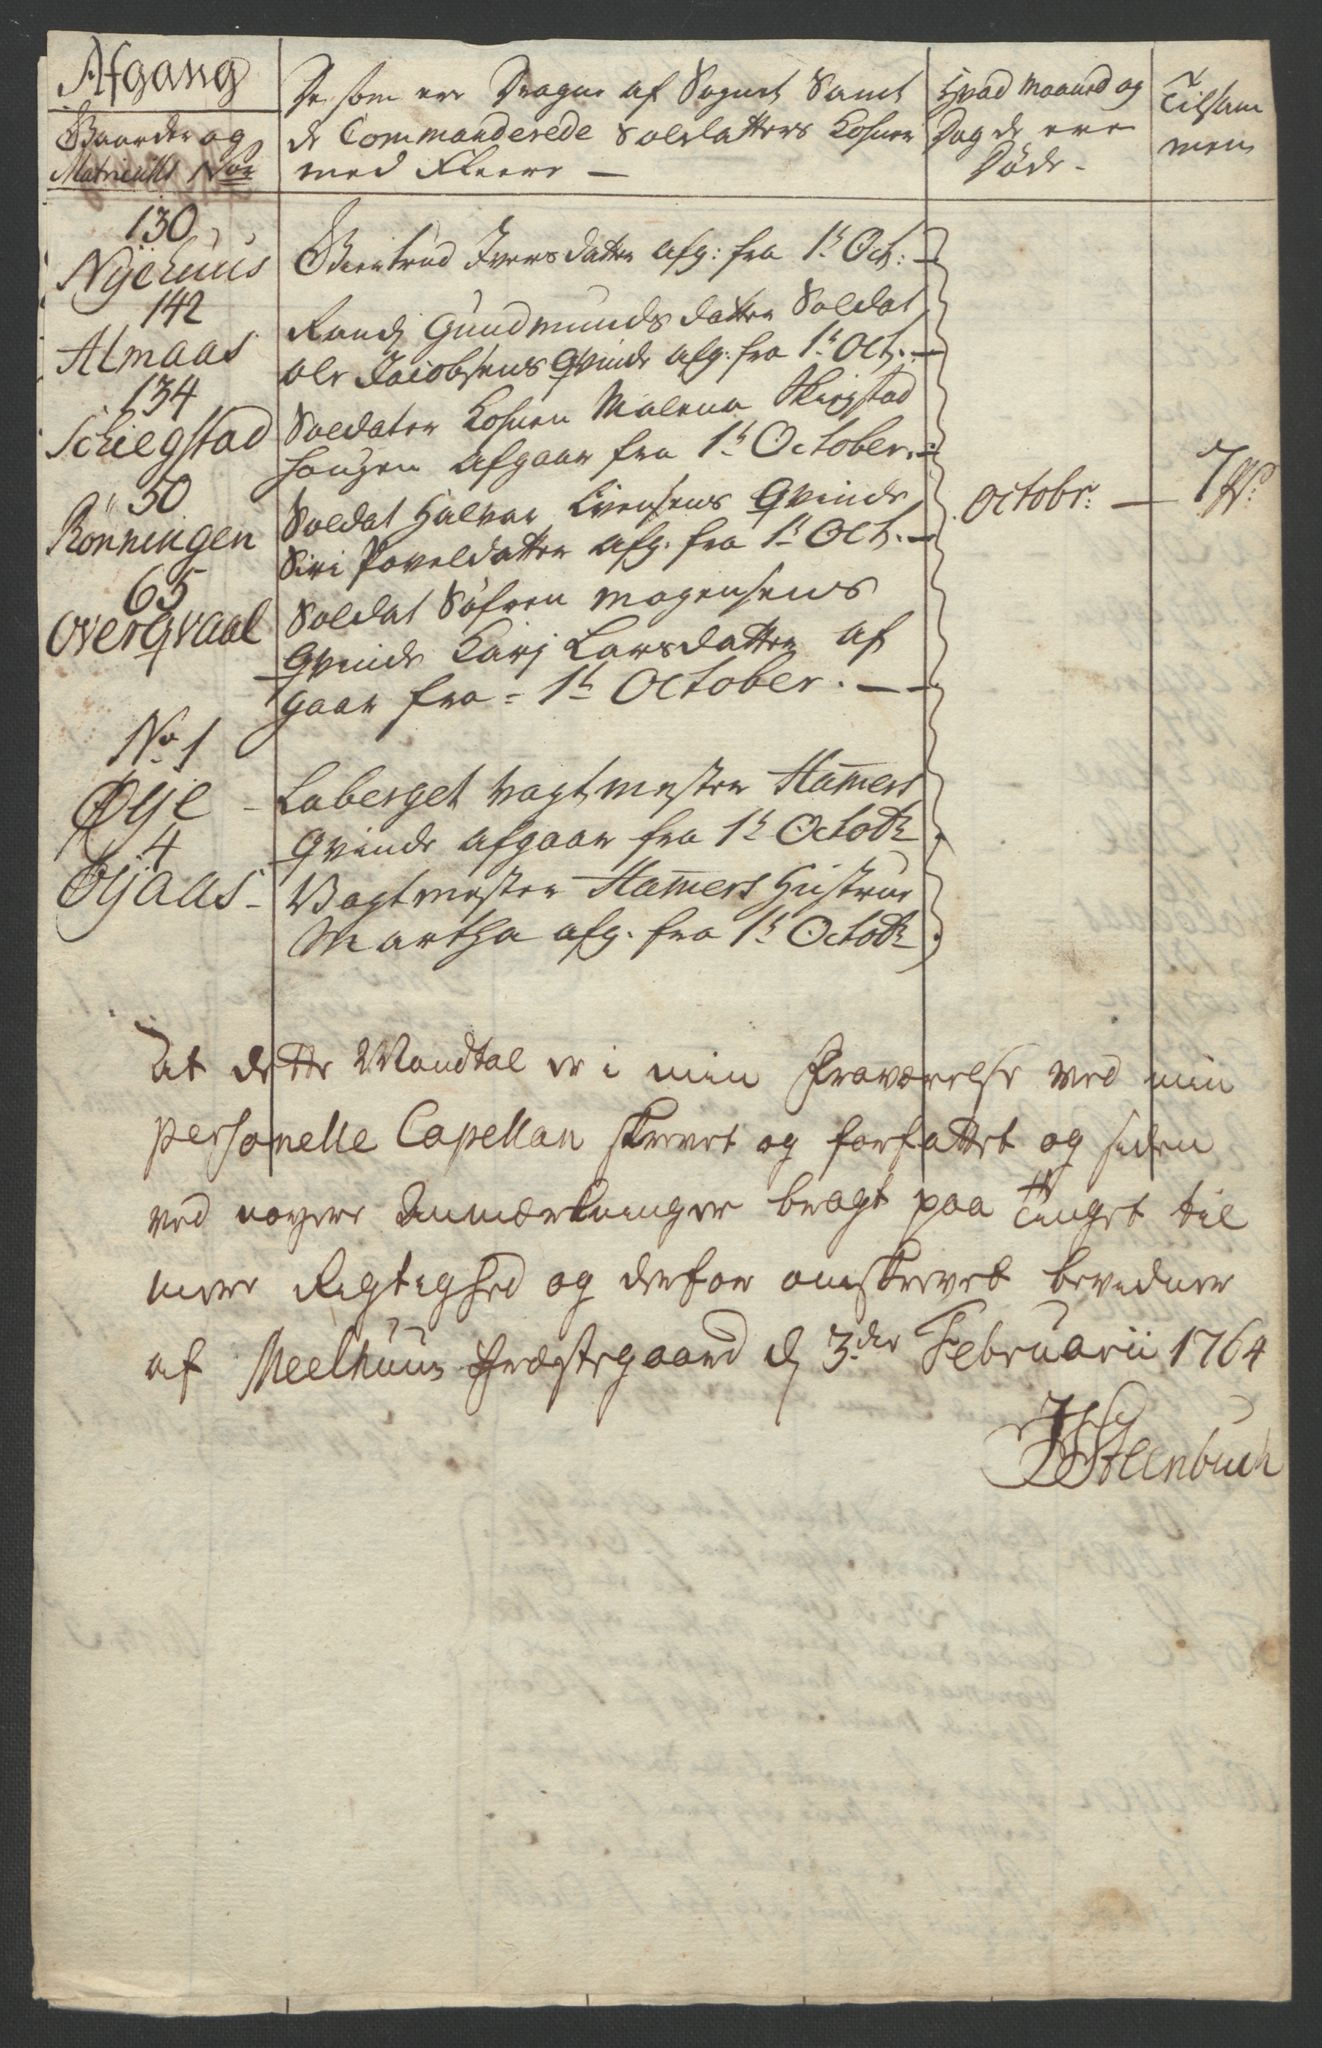 Afgang
Gaarder og
Matriculs Noe
De som ere Dragne af Sognet Samt
de Commanderede Soldatters Kohner
med Fleere —
Hvad Maaned og
Dag de ere
Døde -
Tilsam
men
130
Nÿehuus
Giertrud Ivers datter afg: fra 1te Oct: —
142
Almaas
Randj Gundmunds datter Soldat
Ole Jacobsens Qvinde afg: fra 1te Oct. —
134
Schiegstad
Soldaten Kohnen Malena Skiegstad
hougen afgaar fra 1te October. —
50
Rönningen
Soldat Halvor Evensens Qvinde
Siri Poveldatter afg. fra 1te Oct. —
Octobr: —
7 
65
Overqvaal
Soldat Søfren Mogensens
Qvinde Karj Larsdatter af
gaar fra = 1te October. —
No 1
Øÿe -
Laberget Vagtmester Hamers
Qvinde afgaar fra 1te Octobr
4
Øÿaas -
Vagtmester Hamers Hustrue
Martha afg. fra 1te Octobr
At dette Mandtal er i min Fraværelse ved min
personelle Capellan skrevet og forfattet og siden
ved nøyere Anmærkninger bragt paa Tinget til
mere Rigtighed og derfor omskrevet bevidner
af Meelhuus Præstegaard d 3de Februarii 1764
Steenbuch